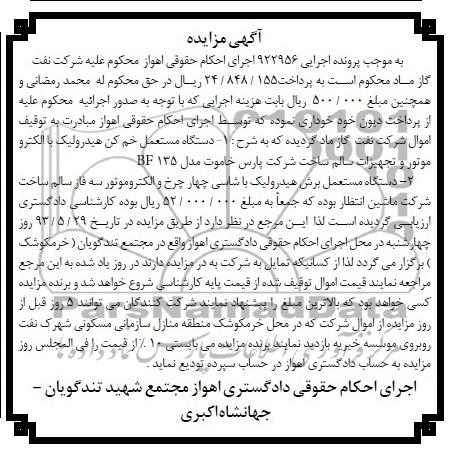 آگهی مزایده
به موجب پرونده اجرایی ۹۲۲۹۵۶ اجرای احکام حقوقی اهواز محکوم علیه شرکت نفت
گاز ماد محکوم است به پرداخت ۱۵۵ / ۸۴۸ / ۲۴ ریال در حق محکوم له محمد رمضانی و
همچنین مبلغ ۰۰۰ / ۵۰۰ ریال بابت هزینه اجرایی که با توجه به صدور اجرائیه محکوم علیه
از پرداخت دیون خود خودداری نموده که توسط اجرای احکام حقوقی اهواز مبادرت به توقیف
اموال شرکت نفت گاز ماد گردیده که به شرح : ۱- دستگاه مستعمل خم کن هیدرولیک با الکترو
موتور و تجهیزات سالم ساخت شرکت پارس خاموت مدل BF ۱۳۵
۲- دستگاه مستعمل برش هیدرولیک با شاسی چهار چرخ و الکتروموتور سه فاز سالم ساخت
شرکت ماشین انتظار بوده که جمعاً به مبلغ ۰۰۰ / ۰۰۰ / ۵۲ ریال بوده کارشناسی دادگستری
ارزیابی گردیده است لذا این مرجع در نظر دارد از طریق مزایده در تاریخ ۲۹ / ۵ / ۹۳ روز
چهارشنبه در محل اجرای احکام حقوقی دادگستری اهواز واقع در مجتمع تندگویان ( خرمکوشک
) برگزار می گردد لذا از کسانیکه تمایل به شرکت به در مزایده دارند در روز یاد شده به این مرجع
مراجعه نمایند قیمت اموال توقیف شده از قیمت پایه کارشناسی شروع خواهد شد و برنده مزایده
کسی خواهد بود که بالاترین مبلغ را پیشنهاد نمایند شرکت کنندگان می توانند ۵ روز قبل از
روز مزایده از اموال شرکت که در محل خرمکوشک منطقه منازل سازمانی مسکونی شهرک نفت
روبروی موسسه خیریه بازدید نمایند برنده مزایده می بایستی ۱۰ ٪ از قیمت را فی المجلس روز
مزایده به حساب دادگستری اهواز در حساب سپرده تودیع نماید .
اجرای احکام حقوقی دادگستری اهواز مجتمع شهید تندگویان –
جهانشاه اکبری
ParsNamadData